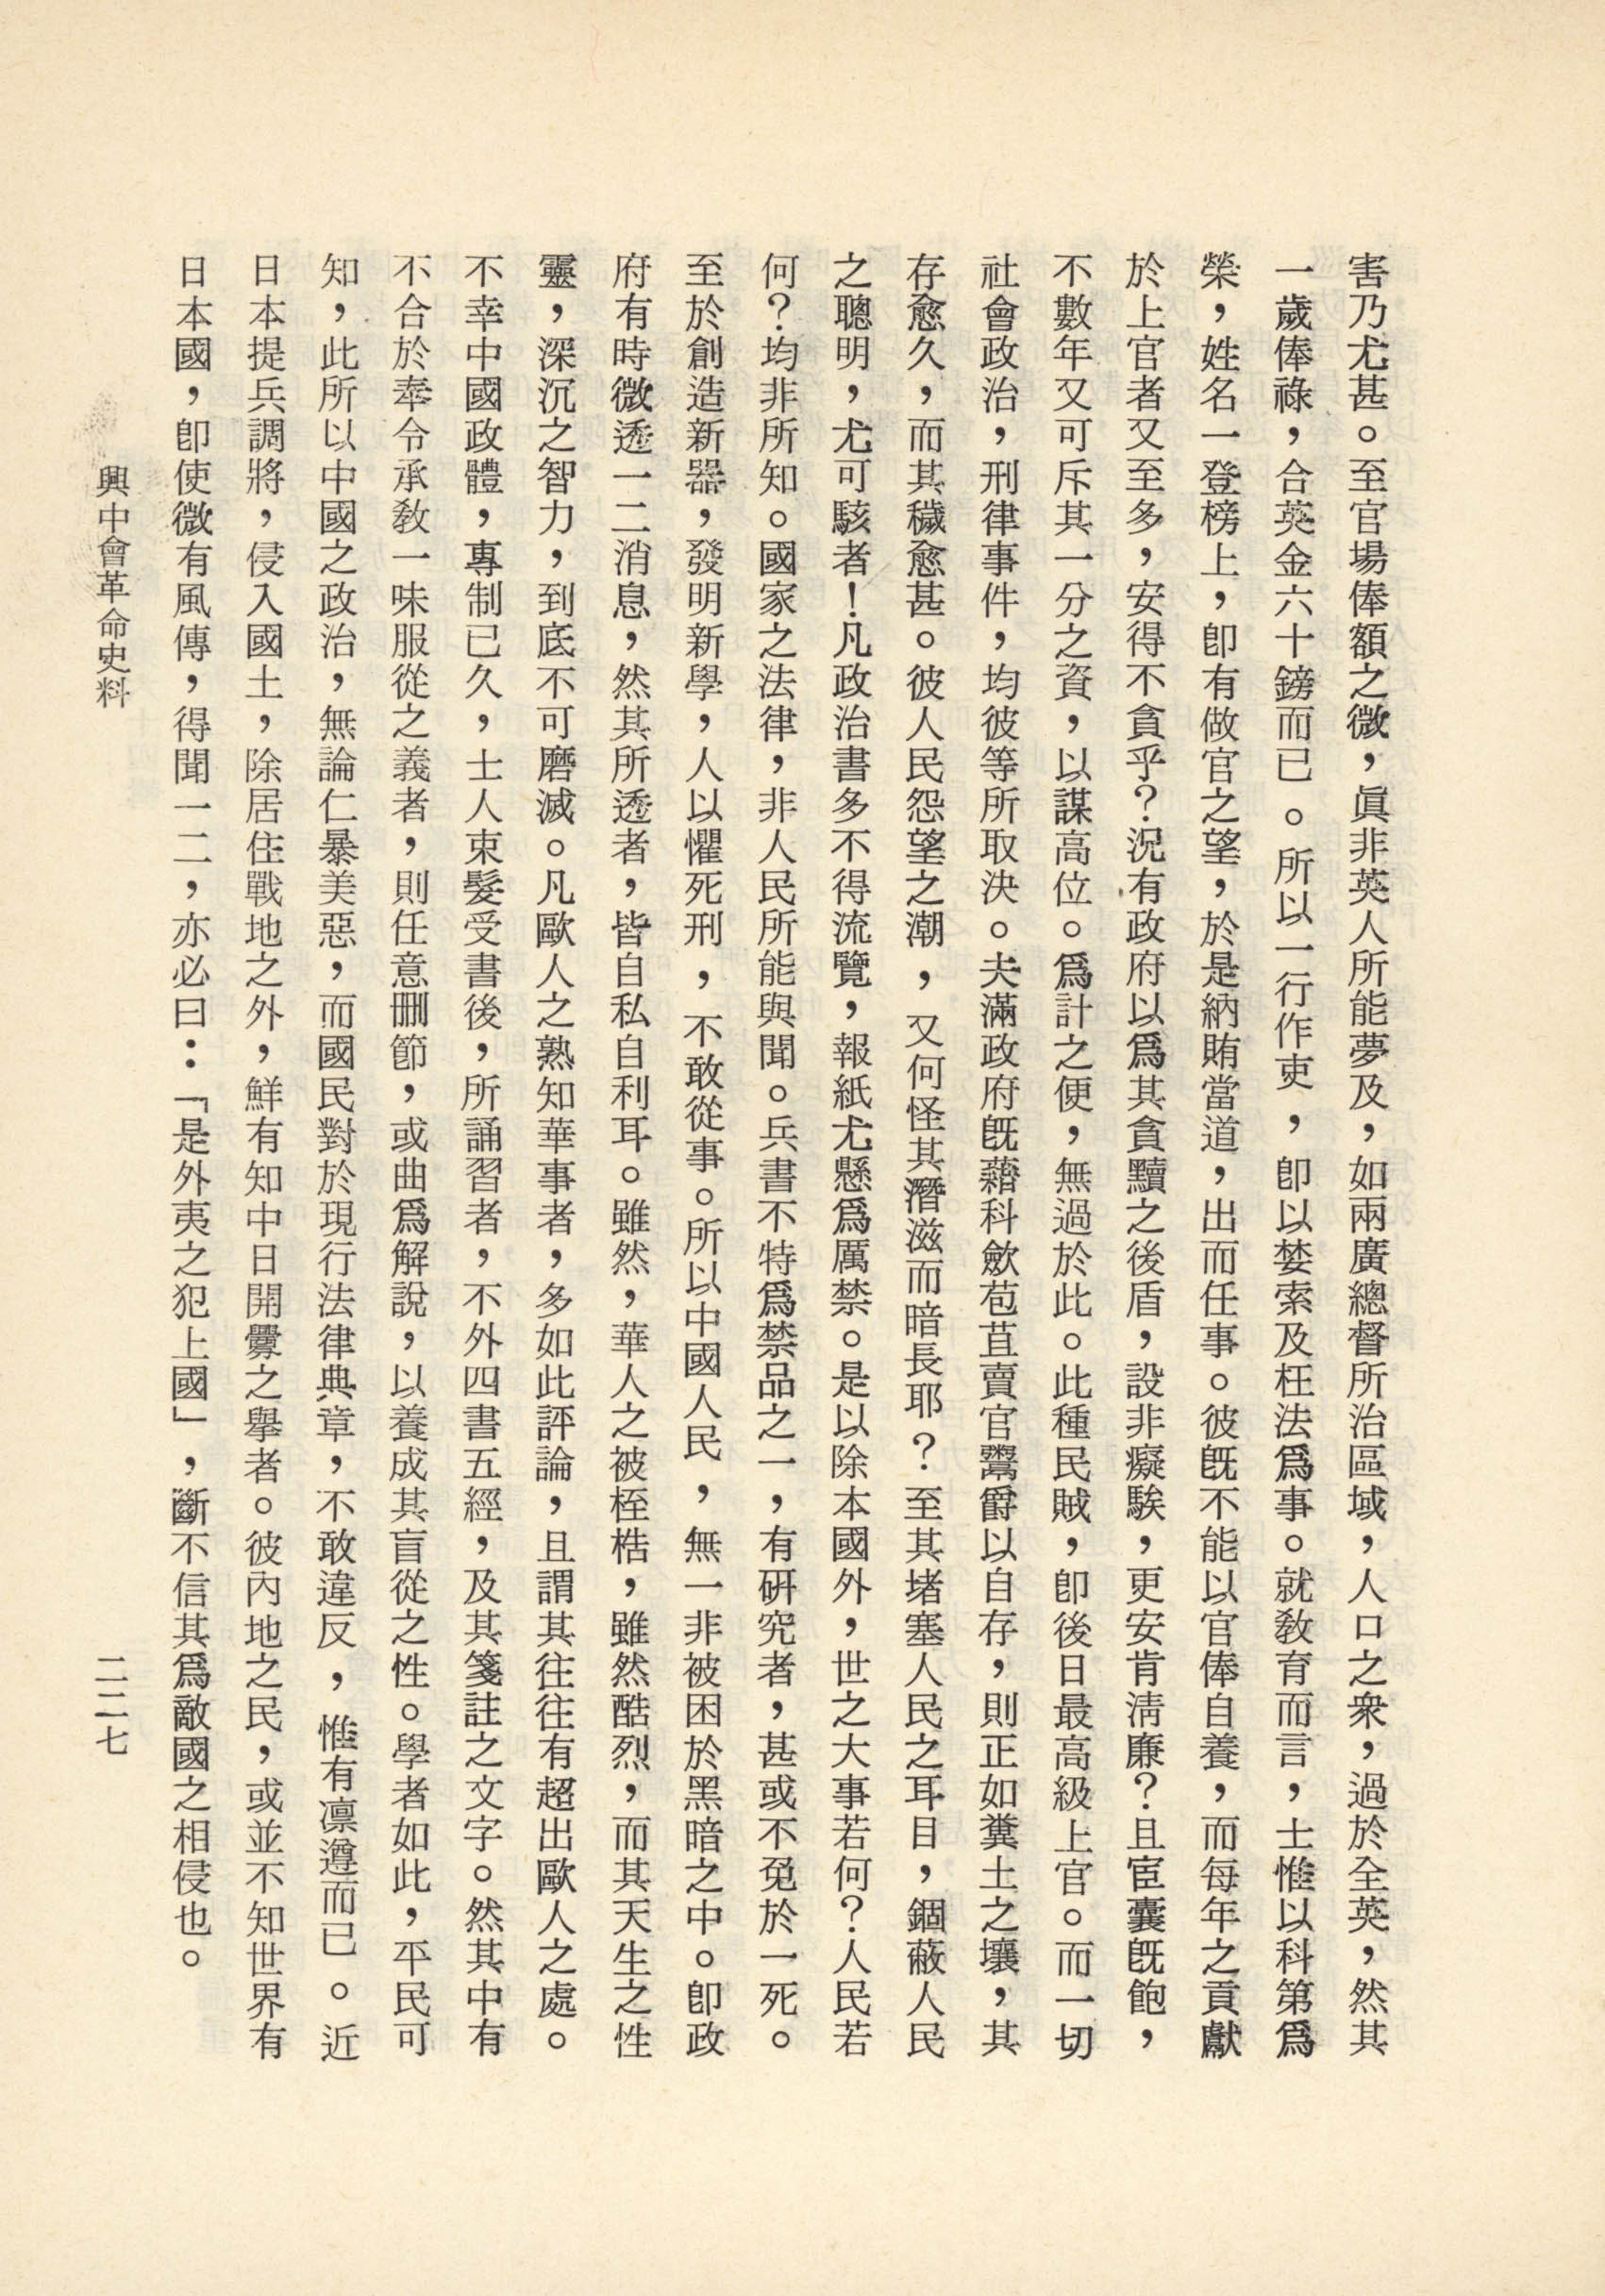 害乃尤甚。至官場俸額之微，眞非英人所能夢及，如兩廣總督所治區域，人口之衆，過於全英，然其
一歲俸祿，合英金六十鎊而已。所以一行作吏，卽以婪索及枉法爲事。就敎育而言，士惟以科第爲
榮，姓名一登榜上，卽有做官之望，於是納賄當道，出而任事。彼旣不能以官俸自養，而每年之貢獻
於上官者又至多，安得不貪乎？況有政府以爲其貪黷之後盾，設非癡騃，更安肯淸廉？且宦囊旣飽，
不數年又可斥其一分之資，以謀高位。爲計之便，無過於此。此種民賊，卽後日最高級上官。而一切
社會政治，刑律事件，均彼等所取決。夫滿政府旣藉科歛苞苴賣官鬻爵以自存，則正如糞土之壤，其
存愈久，而其穢愈甚。彼人民怨望之潮，又何怪其潛滋而暗長耶？至其堵塞人民之耳目，錮蔽人民
之聰明，尤可駭者！凡政治書多不得流覽，報紙尤懸爲厲禁。是以除本國外，世之大事若何？人民若
何？均非所知。國家之法律，非人民所能與聞。兵書不特爲禁品之一，有硏究者，甚或不免於一死。
至於創造新器，發明新學，人以懼死刑，不敢從事。所以中國人民，無一非被困於黑暗之中。卽政
府有時微透一二消息，然其所透者，皆自私自利耳。雖然，華人之被桎梏，雖然酷烈，而其天生之性
靈，深沉之智力，到底不可磨滅。凡歐人之熟知華事者，多如此評論，且謂其往往有超出歐人之處。
不幸中國政體，專制已久，士人束髮受書後，所誦習者，不外四書五經，及其箋註之文字。然其中有
不合於奉令承敎一味服從之義者，則任意删節，或曲爲解說，以養成其盲從之性。學者如此，平民可
知，此所以中國之政治，無論仁暴美惡，而國民對於現行法律典章，不敢違反，惟有凛遵而已。近
日本提兵調將，侵入國土，除居住戰地之外，鮮有知中日開釁之擧者。彼內地之民，或並不知世界有
日本國，卽使微有風傳，得聞一二，亦必曰：「是外夷之犯上國」，斷不信其爲敵國之相侵也。
興中會革命史料
二二七